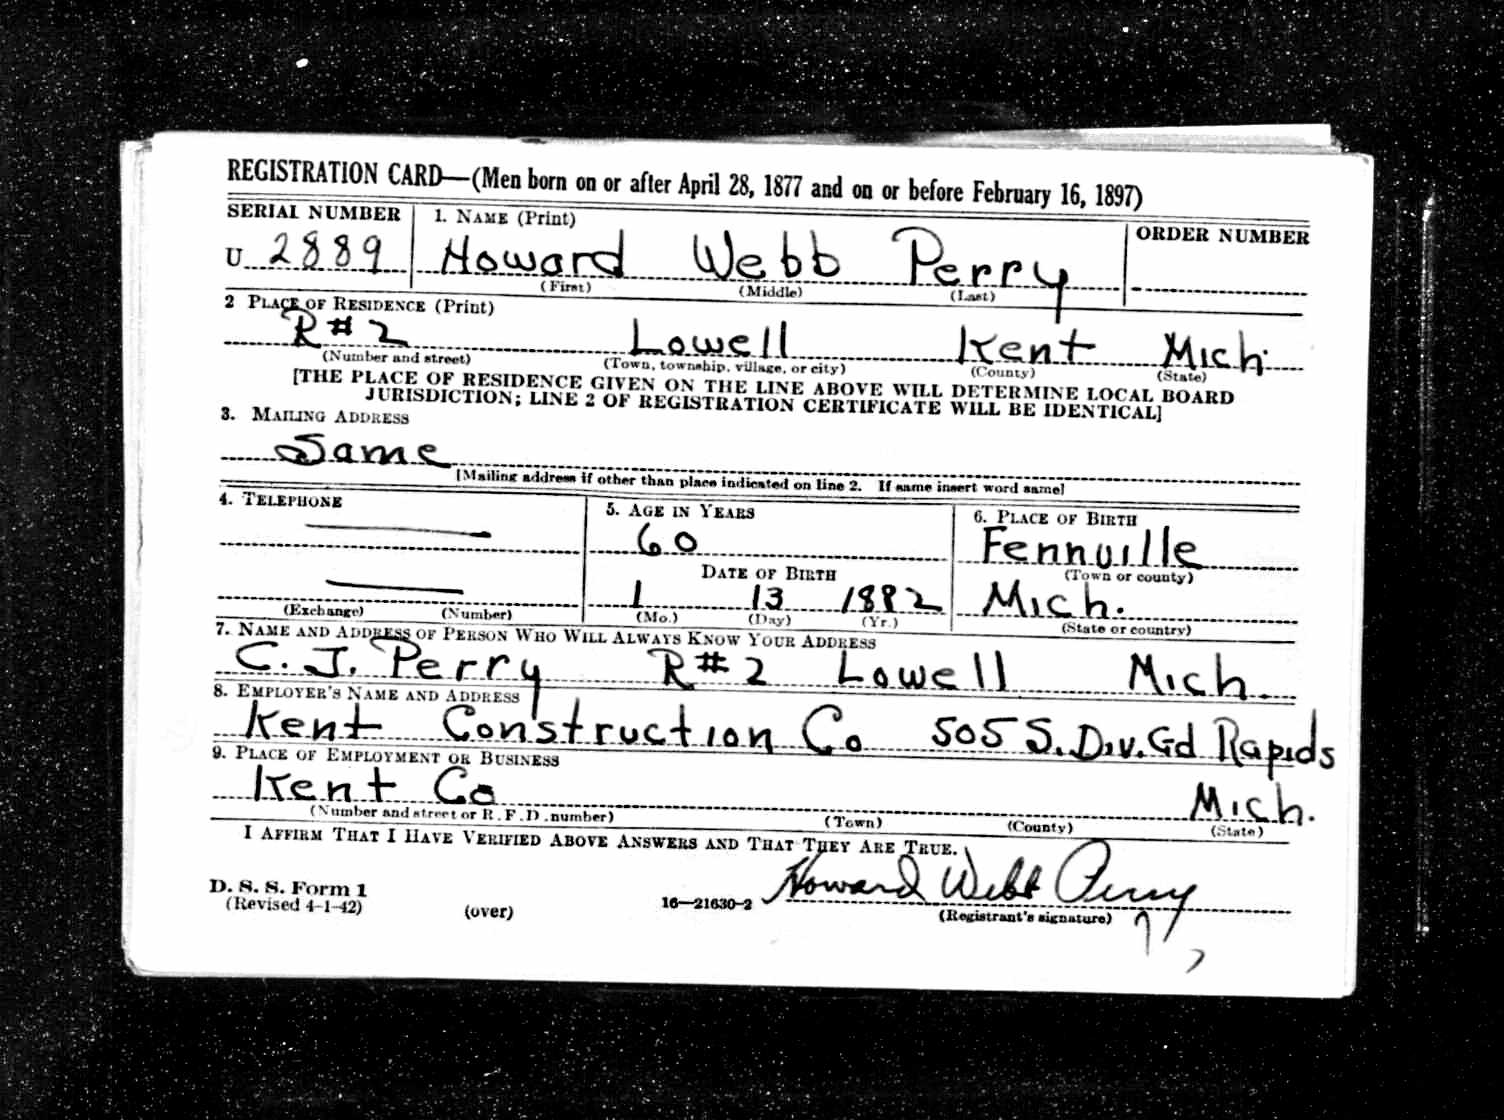 REGISTRATION CARD—(Men born on or after April 28, 1877 and on or before February 16, 1897)
SERIAL NUMBER 1. NAME (Print) ORDER NUMBER
U 2889 Howard Webb Perry
(First) (Middle) (Last)
2 PLACE OF RESIDENCE (Print)
R#2 Lowell Kent Mich.
(Number and street) (Town, township, village, or city) (County) (State)
[THE PLACE OF RESIDENCE GIVEN ON THE LINE ABOVE WILL DETERMINE LOCAL BOARD
JURISDICTION; LINE 2 OF REGISTRATION CERTIFICATE WILL BE IDENTICAL]
3. MAILING ADDRESS
Same
[Mailing address if other than place indicated on line 2. If same insert word same]
4. TELEPHONE 5. AGE IN YEARS 6. PLACE OF BIRTH
60 Fennville
DATE OF BIRTH (Town or county)
1 13 1882 Mich.
(Exchange) (Number) (Mo.) (Day) (Yr.) (State or country)
7. NAME AND ADDRESS OF PERSON WHO WILL ALWAYS KNOW YOUR ADDRESS
C. J. Perry R#2 Lowell Mich.
8. EMPLOYER'S NAME AND ADDRESS
Kent Construction Co 505 S. Div. Gd Rapids
9. PLACE OF EMPLOYMENT OR BUSINESS
Kent Co Mich.
(Number and street or R. F. D. number) (Town) (County) (State)
I AFFIRM THAT I HAVE VERIFIED ABOVE ANSWERS AND THAT THEY ARE TRUE.
Howard Webb Perry
D. S. S. Form 1
(Revised 4-1-42) (over) 16—21630-2 (Registrant's signature)